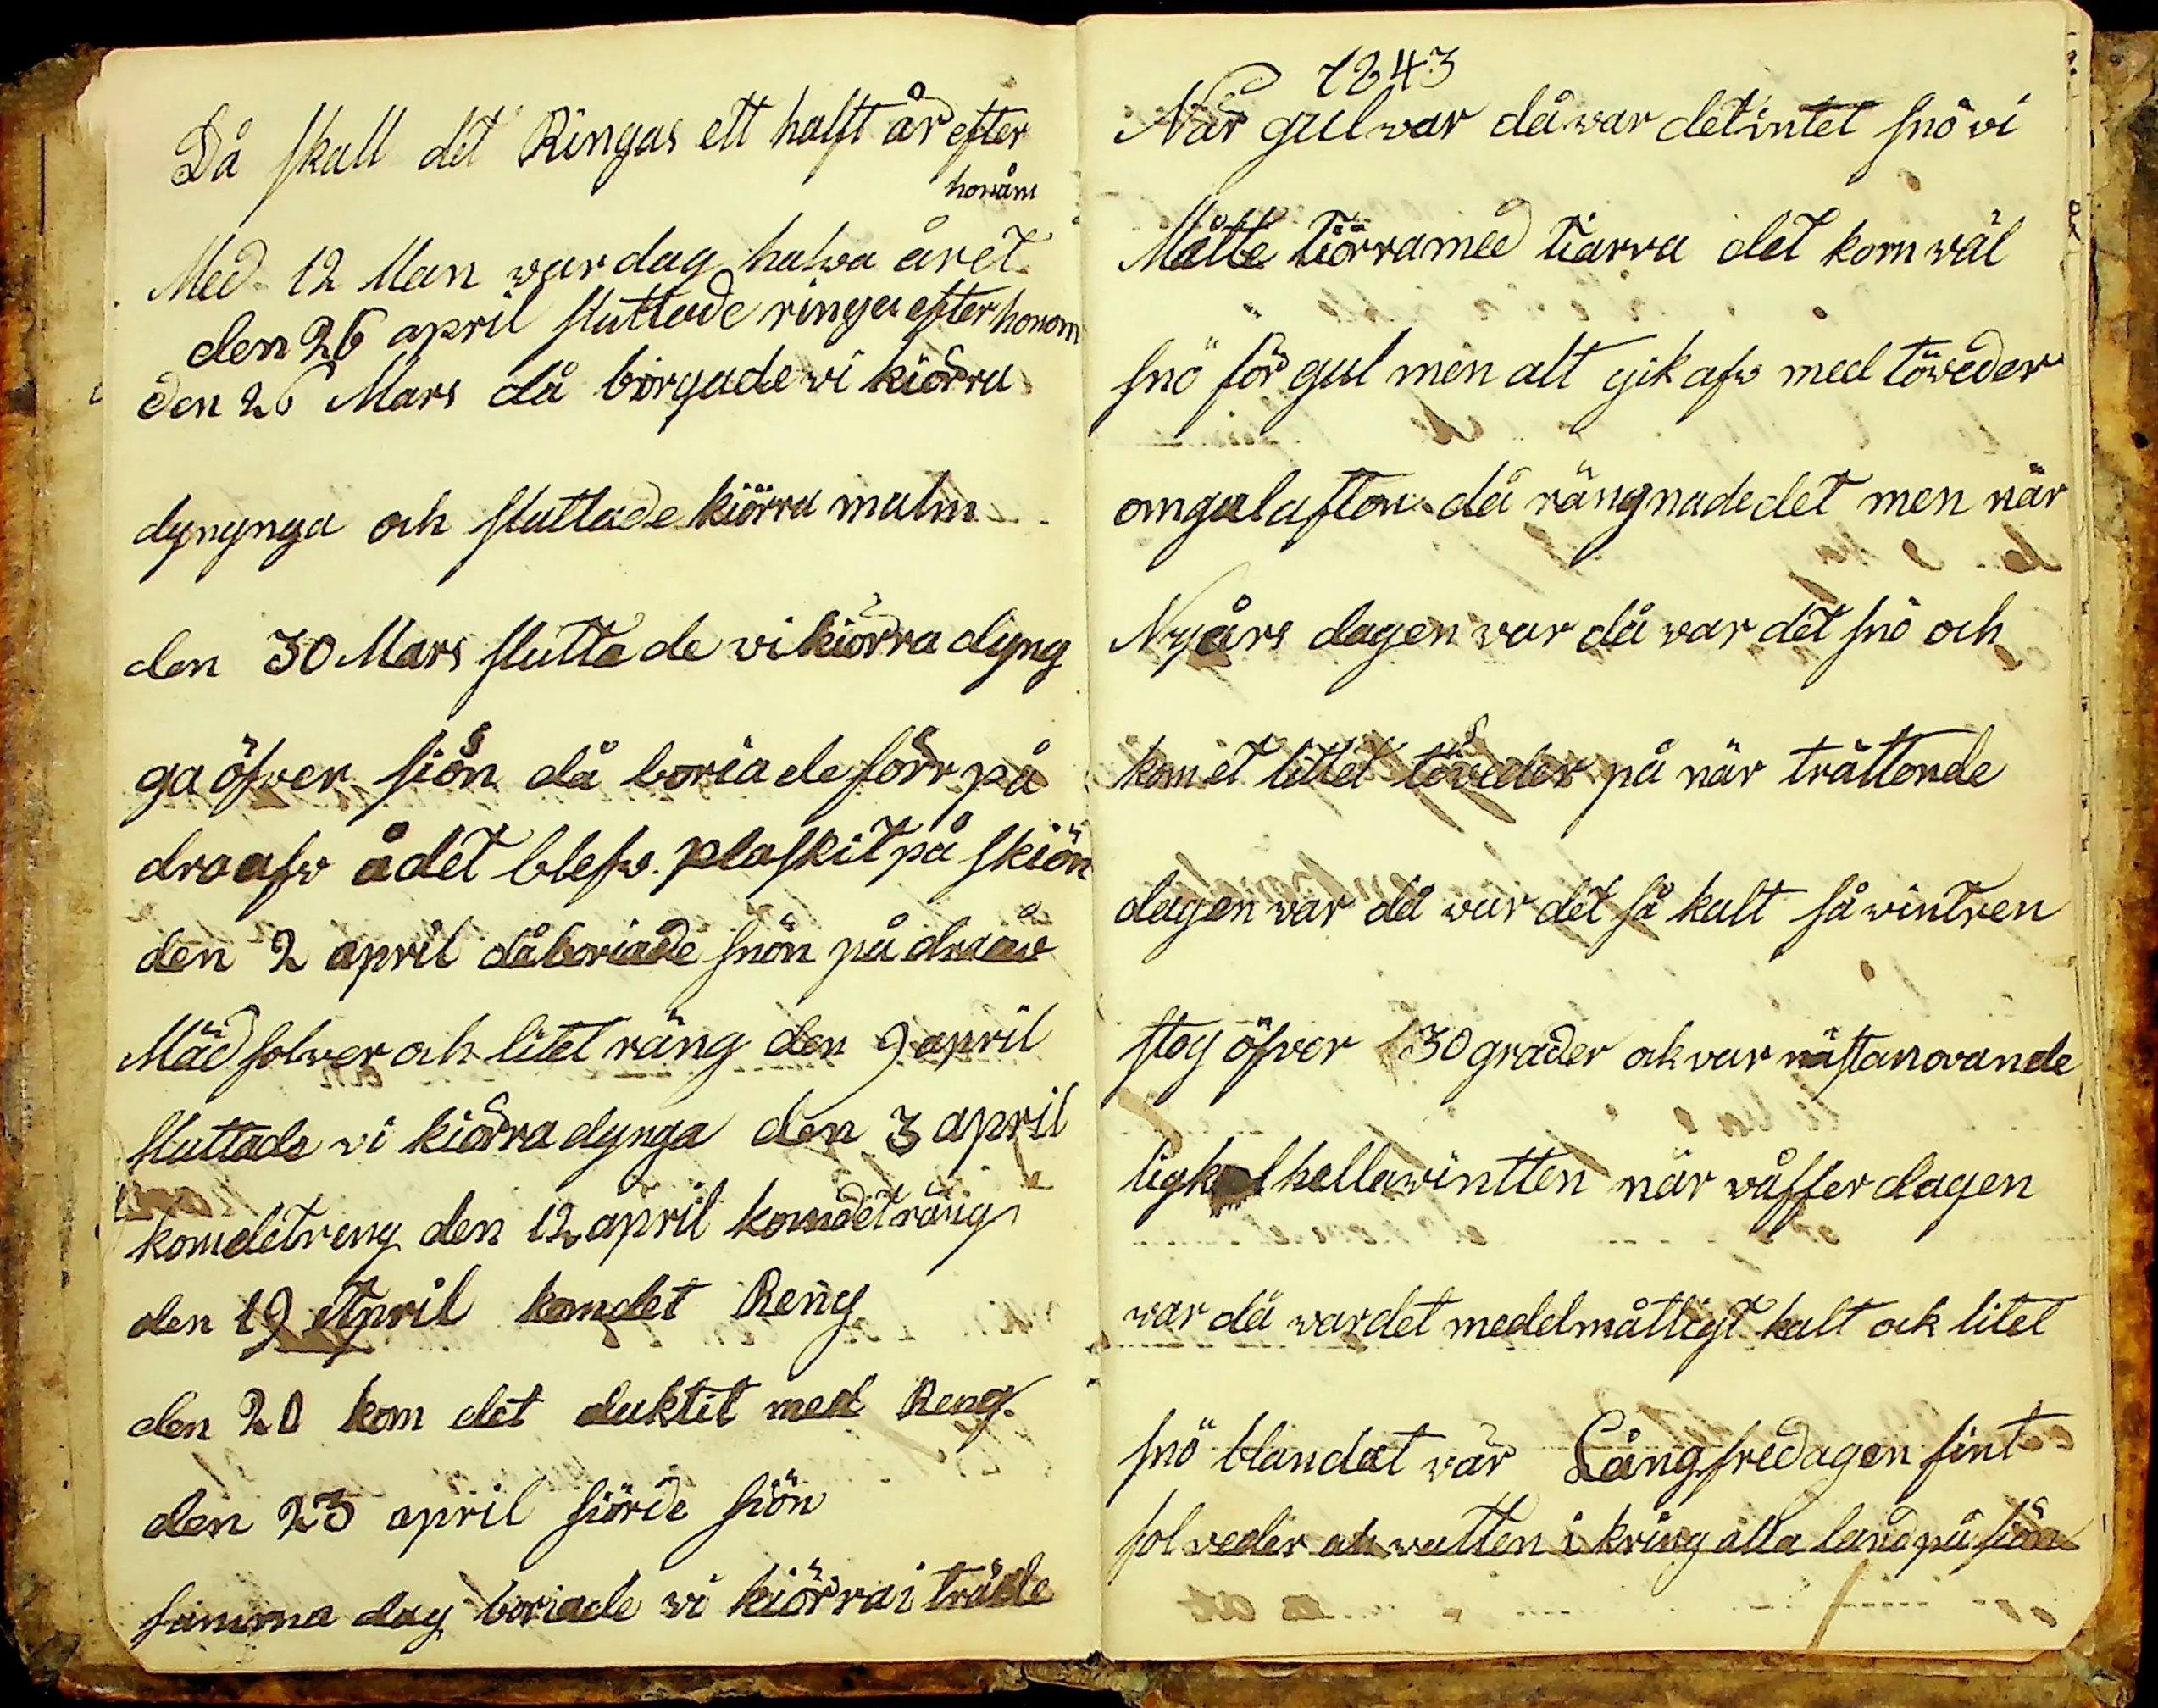 Då skall det Ringas ett halft år efter
honåm
Med 12 Man war dag halwa året
den 26 april sluttade ringa efter honom
den 26 Mars då börgade vi kiörra
dynynga och sluttade kiörra malm
den 30 Mars slutta de vi kiörra dyng
ga öfver siön då boria de förr på
dra afw å det blefw plaskit på skiön
den 2 april då boriade snön på draaw
Mäd solver och litet räng den 9 april
sluttade vi kiörra dynga den 3 april
kom det reng den 12 april kom det räng
den 19 April kom det Reng
den 20 kom det duktit med Reng
den 23 april siörde siön
samma dag boriade vi kiörra i träde
1843
När gul war då war det intet snö vi
Måtte tiörra med tiärra det kom wäl
snö för gul men alt gik afw med töveder
om gulafton då rängnade det men när
Nyårs dagen var då war det snö och
kom et littet töveder på när trättonde
dagen war då war det så kalt så wintren
steg öfver 30 grader ok var nästan ovande
lig hella wintten när våffer dagen
war då war det medelmåttigt kalt ok litet
snö blandat när Långfredagen fint
sol veder ok vatten i kring alla land på siön